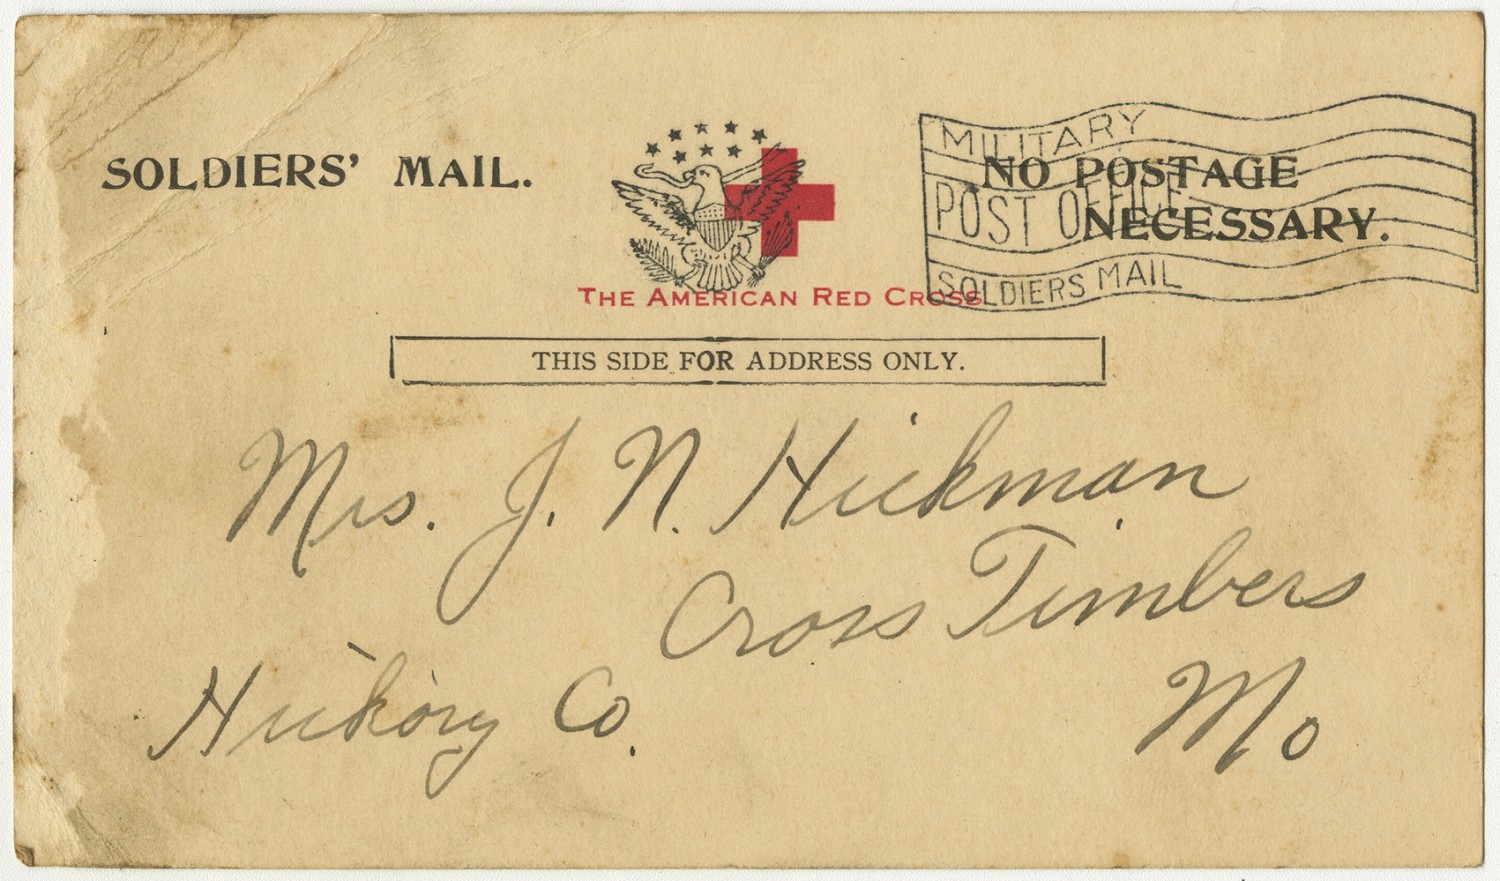 SOLDIERS' MAIL.
NO POSTAGE
NECESSARY.
MILITARY
POST OFFICE
SOLDIERS MAIL
THE AMERICAN RED CROSS
THIS SIDE FOR ADDRESS ONLY.
Mrs. J. N. Hickman
Cross Timbers
Hickory Co.
Mo